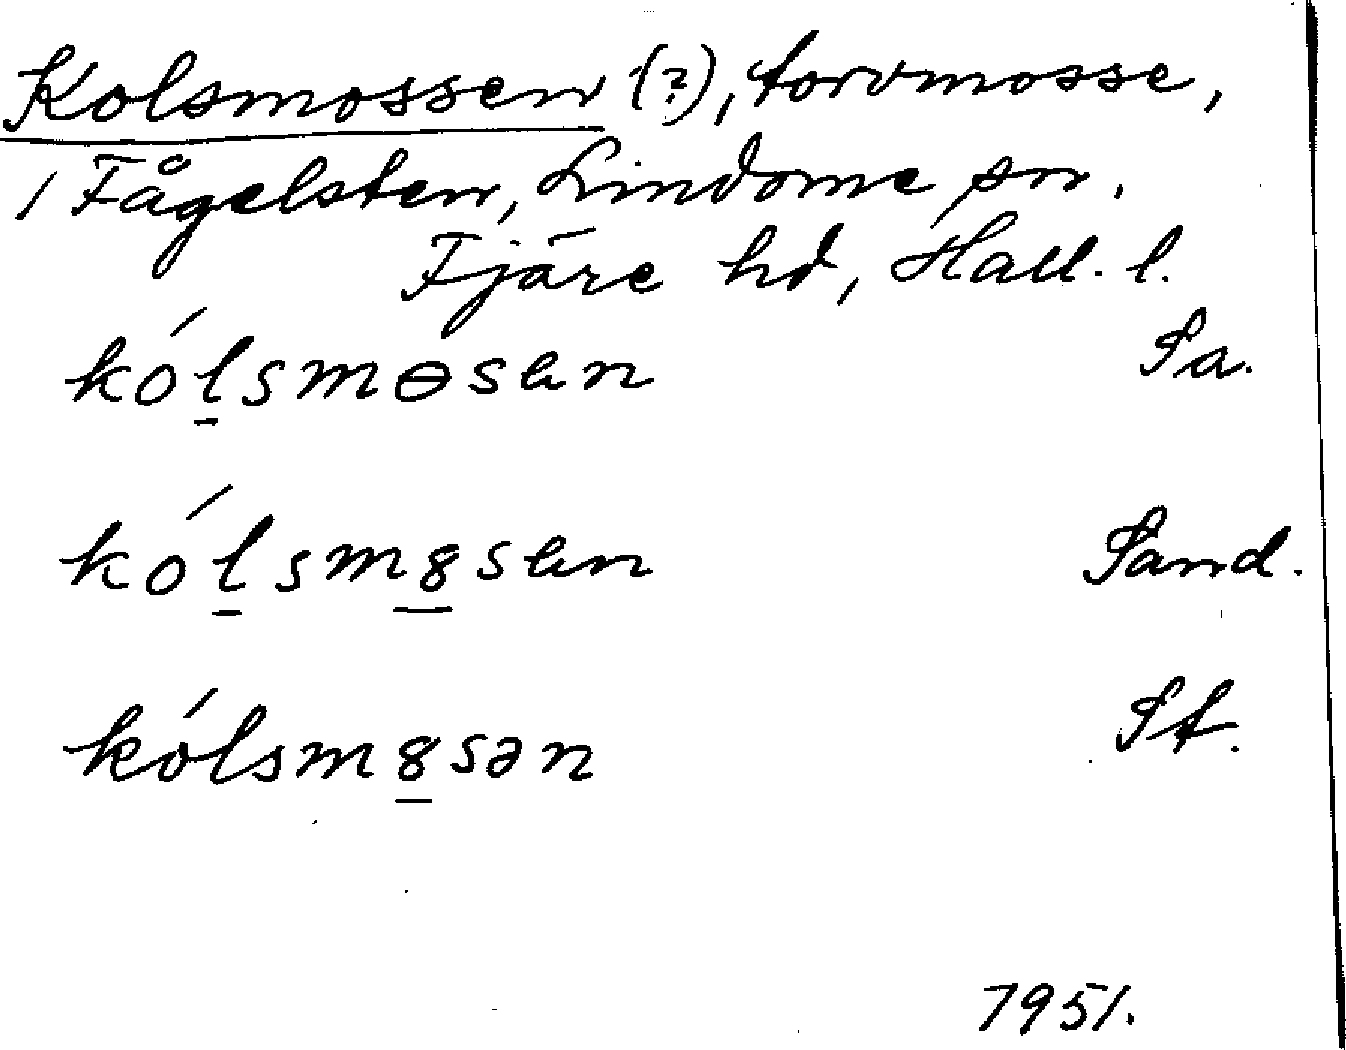 Kolsmossen (?), torvmosse,
/ Fågelsten, Lindome sn.
Fjäre hd, Hall. l.
kó́l̠smɵsɐn Sa.
kó́l̠sm8̠sɐn Sand.
kó́lsm8̠sən St.
7951.